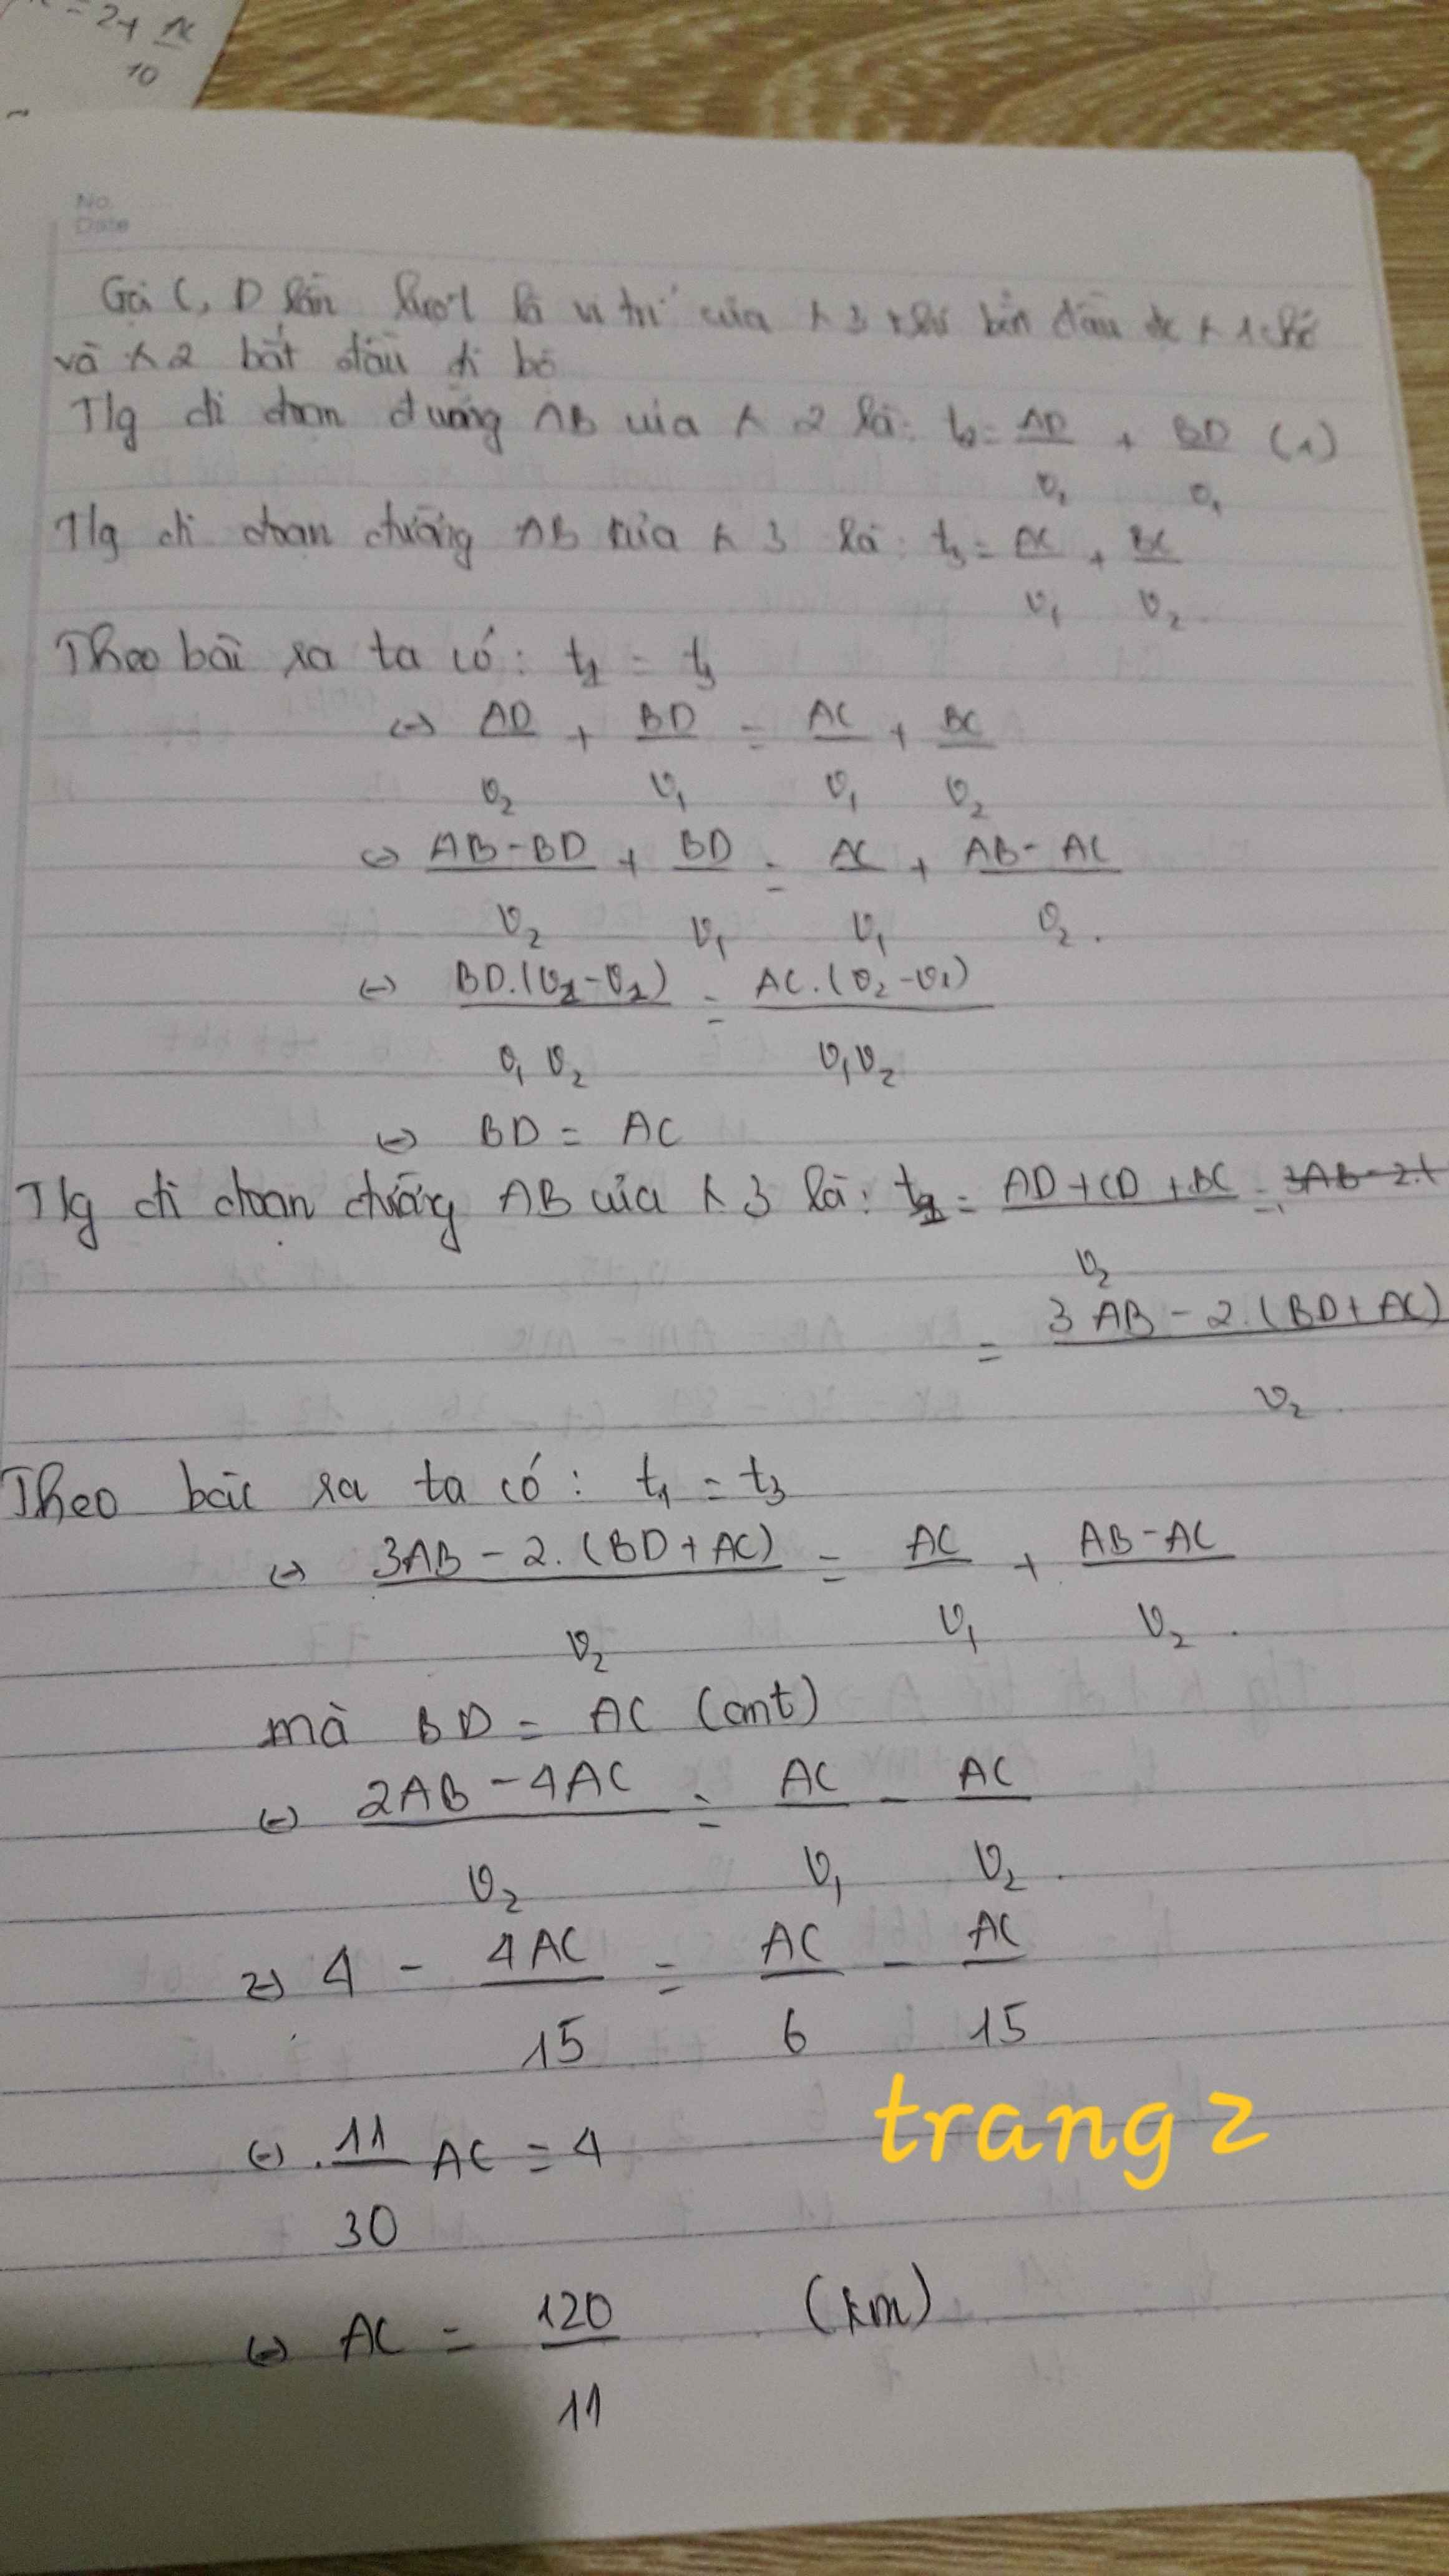 = 24 AC
10
No.
Date
Gọi C, D lần lượt là vị trí của x 3 khi bắt đầu đc x 1 chở
và x 2 bắt đầu đi bộ
T/g đi đoạn đường AB của x 2 là: t2 = AD/v2 + BD/v1 (1)
T/g đi đoạn đường AB của x 3 là: t3 = AC/v1 + BC/v2
Theo bài ra ta có: t2 = t3
<=> AD/v2 + BD/v1 = AC/v1 + BC/v2
<=> AB-BD/v2 + BD/v1 = AC/v1 + AB-AC/v2.
<=> BD.(v2-v1)/v1v2 = AC.(v2-v1)/v1v2
<=> BD = AC
T/g đi đoạn đường AB của x 3 là: t1 = AD+CD+BC/v2
= 3AB-2.(BD+AC)/v2.
Theo bài ra ta có: t1 = t3
<=> 3AB-2.(BD+AC)/v2 = AC/v1 + AB-AC/v2.
mà BD = AC (cmt)
<=> 2AB-4AC/v2 = AC/v1 - AC/v2.
=> 4 - 4AC/15 = AC/6 - AC/15
<=> 11/30 AC = 4
<=> AC = 120/11 (km)
trang 2